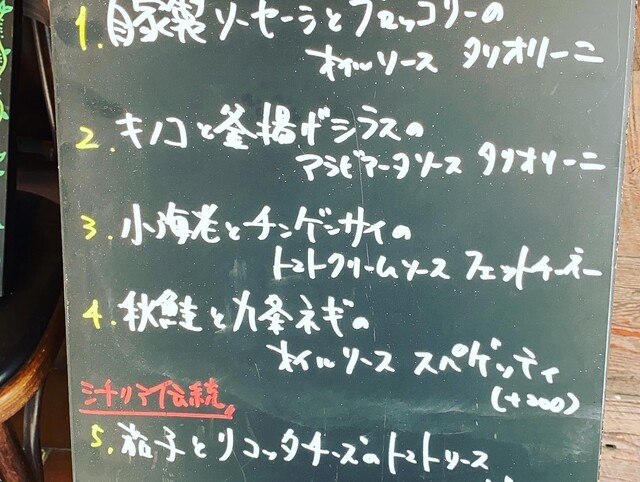 1. 自家製ソーセージとブロッコリーの
オイルソース タリオリーニ
2. キノコと釜揚げシラスの
アラビアータソース タリオリーニ
3. 小海老とチンゲンサイの
トマトクリームソース フェットチーネ
4. 秋鮭と九条ネギの
オイルソース スパゲッティ
(+200)
シチリア伝統
5. 茄子とリコッタチーズのトマトソース